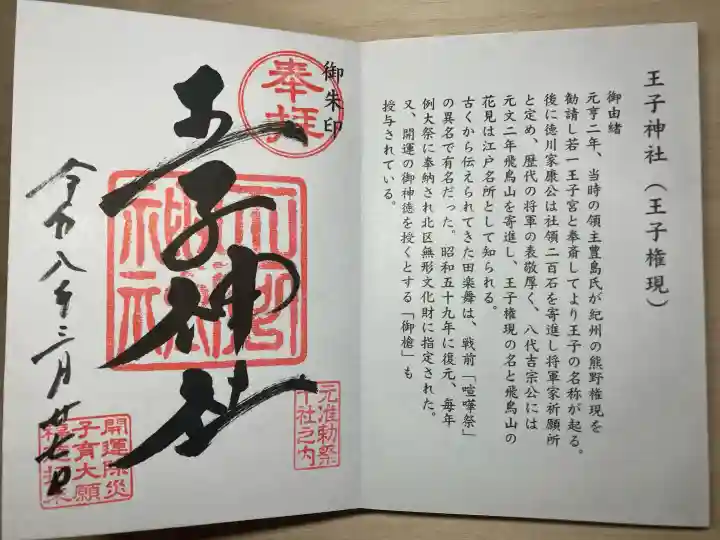 王子神社(王子権現)
御由緒
元亨二年、当時の領主豊島氏が紀州の熊野権現を
勧請し若一王子宮と奉斎してより王子の名称が起る。
後に徳川家康公は社領二百石を寄進し将軍家祈願所
と定め、歴代の将軍の表敬厚く、八代吉宗公には
元文二年飛鳥山を寄進し、王子権現の名と飛鳥山の
花見は江戸名所として知られる。
古くから伝えられてきた田楽舞は、戦前「喧嘩祭」
の異名で有名だった。昭和五十九年に復元、毎年
例大祭に奉納され北区無形文化財に指定された。
又、開運の御神徳を授くとする「御槍」も
授与されている。
御朱印
奉拝
元准勅祭
十社之内
王子神社
開運除災
子育大願
令和八年三月廿七日